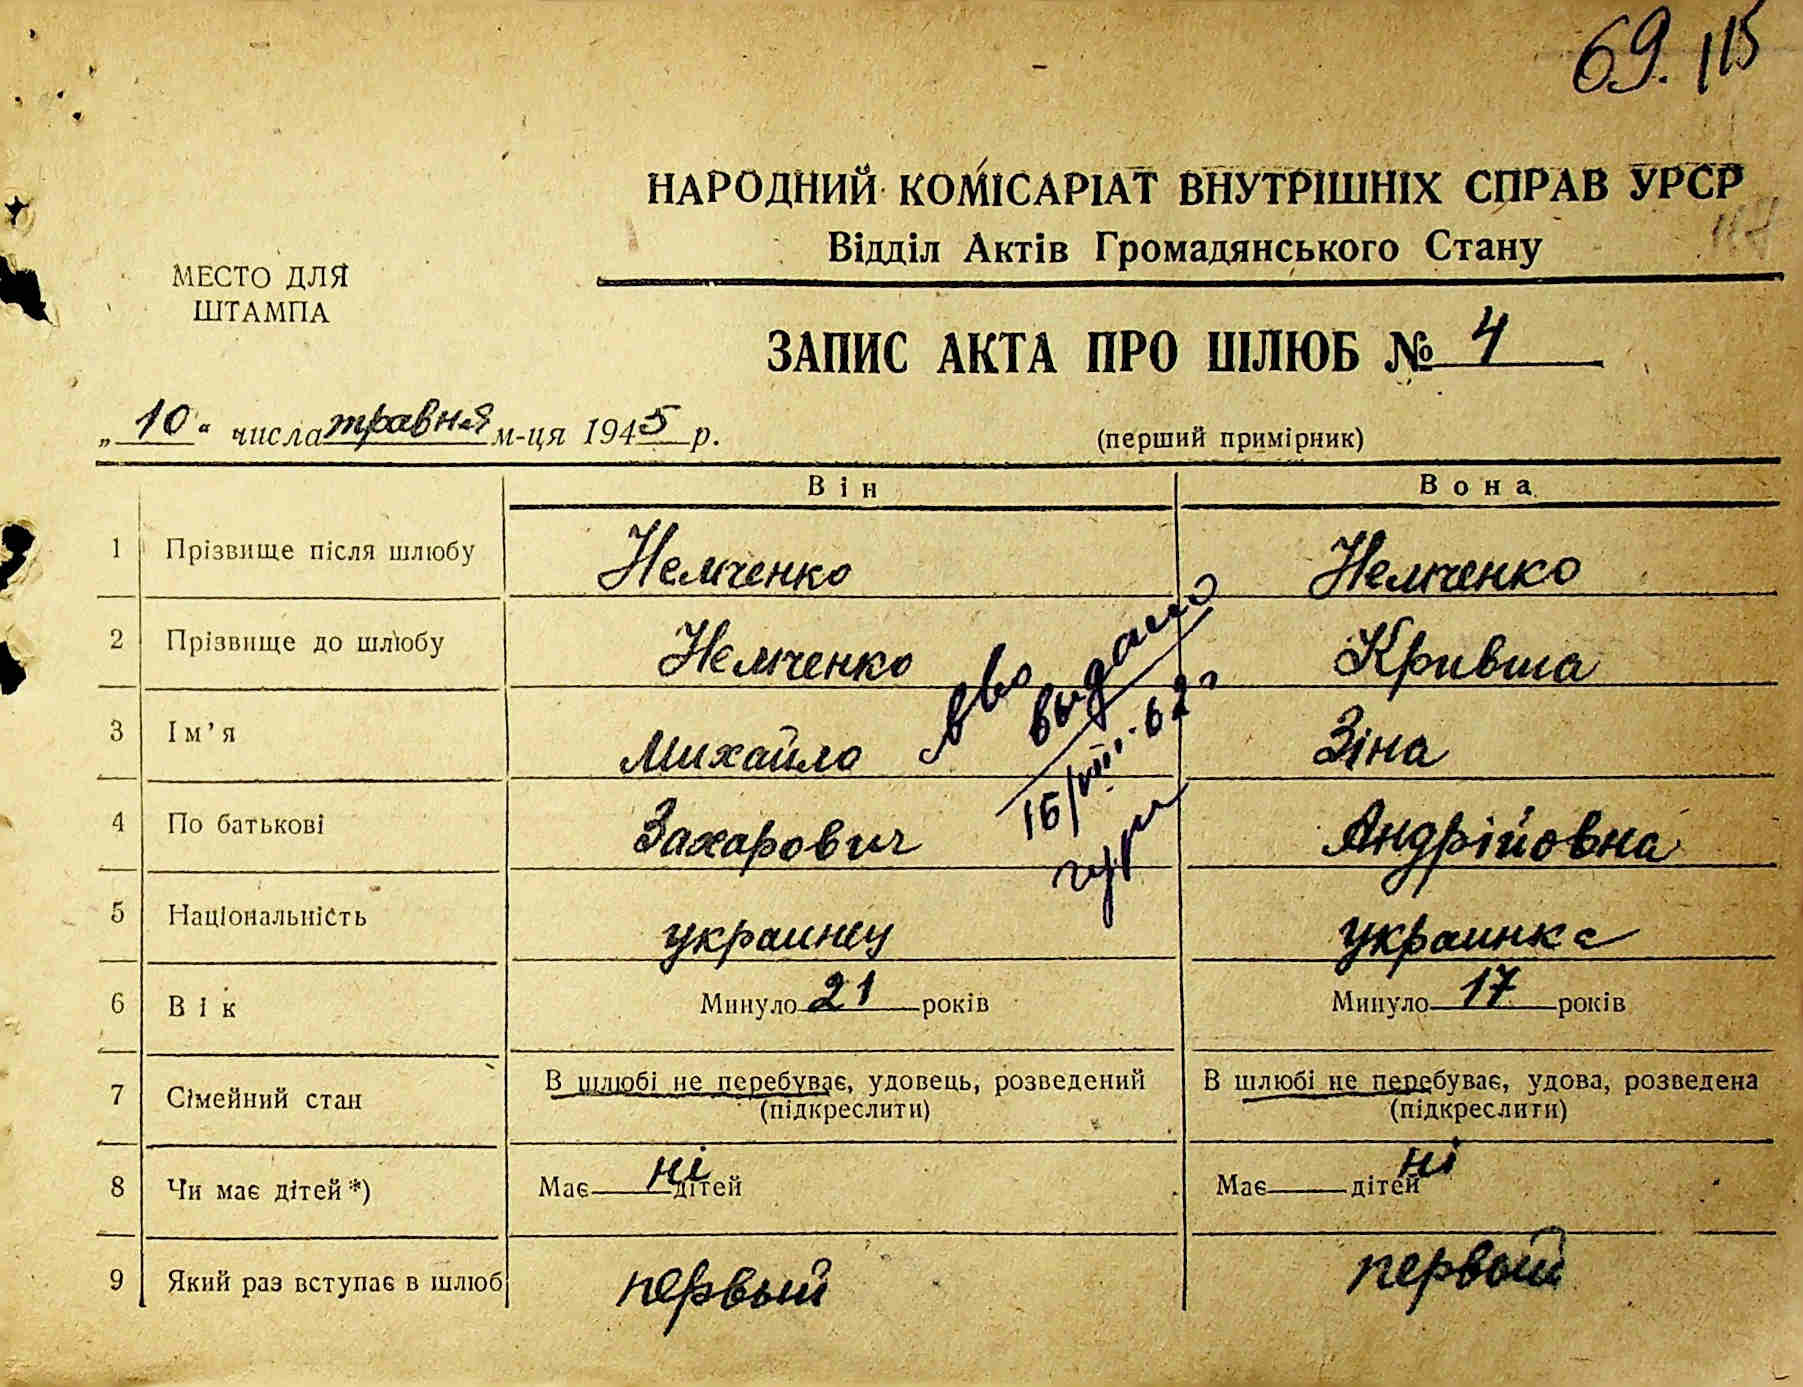 69. 115
НАРОДНИЙ КОМІСАРІАТ ВНУТРІШНІХ СПРАВ УРСР
Відділ Актів Громадянського Стану
МЕСТО ДЛЯ
ШТАМПА
ЗАПИС АКТА ПРО ШЛЮБ № 4
„10“ числа травня м-ця 1945 р.
(перший примірник)
Він Вона
1 Прізвище після шлюбу Немченко Немченко
2 Прізвище до шлюбу Немченко Кривша
3 Ім'я Михайло Зіна
4 По батькові Захарович Андрійовна
5 Національність украинец украинка
6 Вік Минуло 21 років Минуло 17 років
7 Сімейний стан В шлюбі не перебуває, удовець, розведений (підкреслити) В шлюбі не перебуває, удова, розведена (підкреслити)
8 Чи має дітей*) Має ні дітей Має ні дітей
9 Який раз вступає в шлюб первый первый
выдано
15/VIII.62г